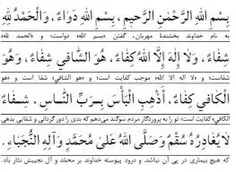 بِسْمِ اللهِ الرَّحْمٰنِ الرَّحيمِ، بِسْمِ اللهِ دَوَاءٌ، وَالْحَمْدُ لِلّٰهِ
به نام خداوند بخشندهٔ مهربان، گفتن «بسم الله» دواست و «الحمد لله»
شِفَاءٌ، وَلَا إِلٰهَ إِلَّا اللهُ كِفَاءٌ، هُوَ الشَّافِي شِفَاءٌ، وَهُوَ
شفاست و «لا اله الا الله» موجب کفایت است و «هو الشافی» شفا است و «هو
الْكَافِي كِفَاءٌ، أَذْهِبِ الْبَأْسَ بِرَبِّ النَّاسِ، شِفَاءٌ
الکافی» کفایت است؛ تو را به پروردگار مردم سوگند می‌دهم که بدی را دور گردانی و شفایی بدهی
لَا يُغَادِرُهُ سُقْمٌ وَصَلَّى اللهُ عَلَى مُحَمَّدٍ وَآلِهِ النُّجَبَاءِ.
که هیچ بیماری در پی آن نباشد. و درود پیوسته خداوند بر محمد و آل نجیبش نثار باد.